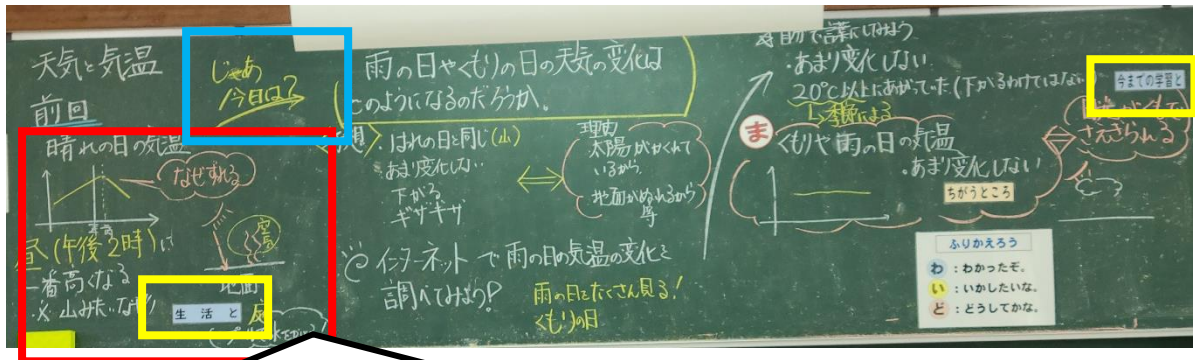 天気と気温
前回
晴れの日の気温
なぜずれる
昼(午後2時)に
一番高くなる
※山みたいな
地面
生活と
じゃあ
今日は?
雨の日やくもりの日の天気の変化は
どのようになるのだろうか。
予想
・はれの日と同じ(山)
あまり変化しない
下がる
ギザギザ
理由
太陽がかくれて
いるから
地面がぬれるから
等
インターネットで雨の日の気温の変化を
調べてみよう!
雨の日をたくさん見る!
くもりの日
・あまり変化しない
20℃以上にあがっていた(下がるわけではない
季節による
ま
くもりや雨の日の気温
・あまり変化しない
ちがうところ
今までの学習と
さえぎられる
ふりかえろう
わ:わかったぞ。
い:いかしたいな。
ど:どうしてかな。